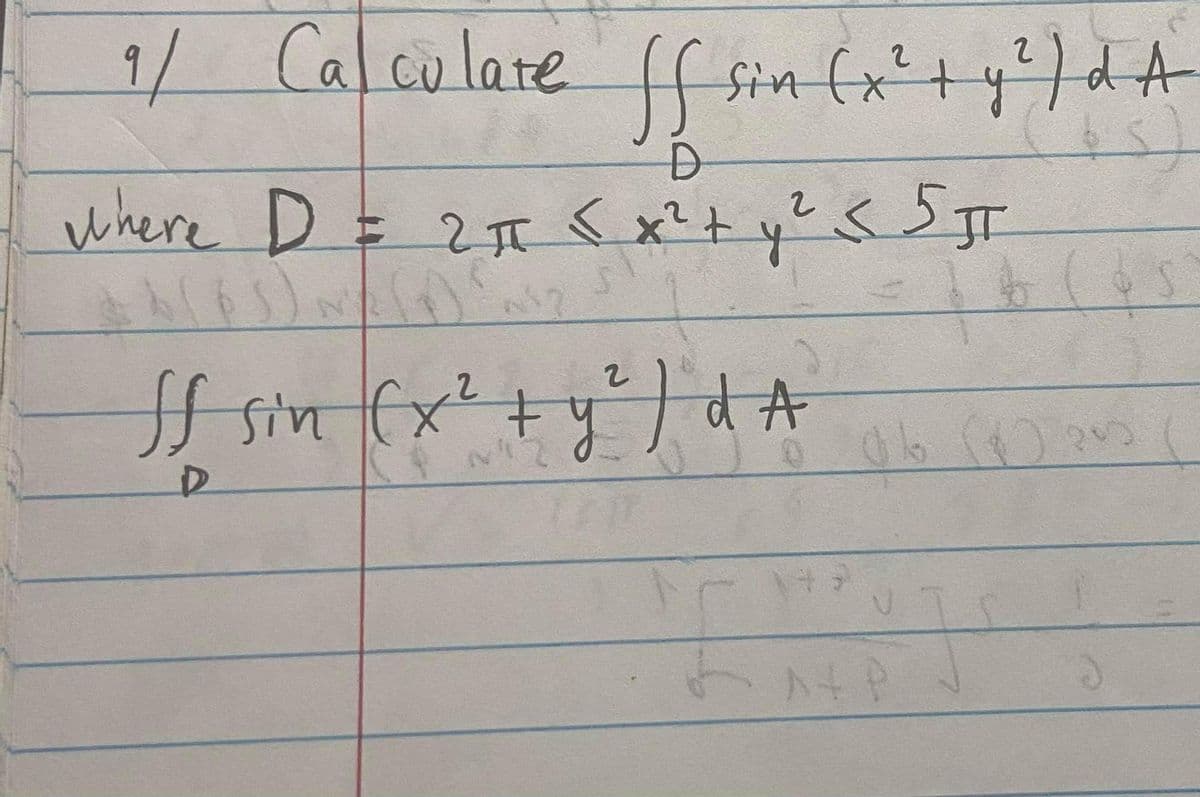 9/ Calculate ∬ sin (x² + y²) d A
D
where D = 2π ≤ x² + y² ≤ 5π
∬ sin (x² + y²) d A
D